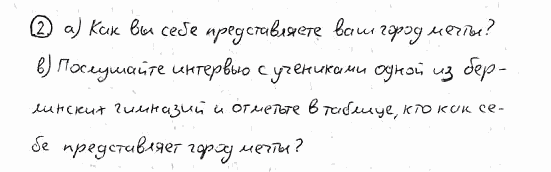 ② а) Как вы себе представляете ваш город мечты?
в) Послушайте интервью с учениками одной из бер-
линских гимназий и отметьте в таблице, кто как се-
бе представляет город мечты?